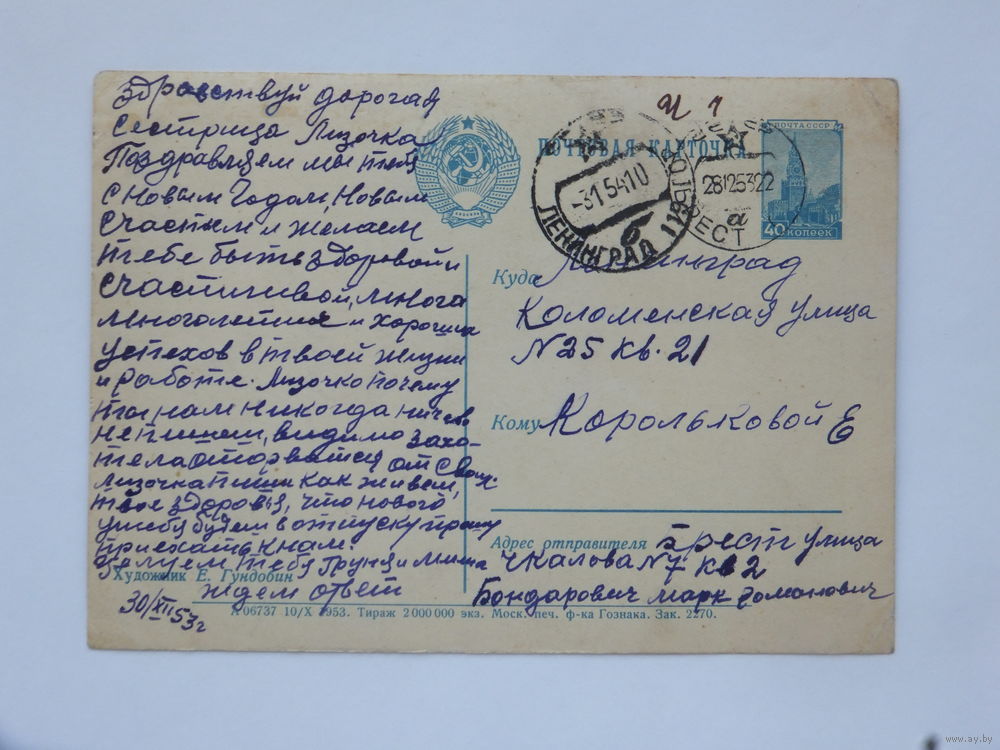 Здравствуй дорогая
Сестрица Лизочка
Поздравляем мы тебя
с Новым Годом, Новым
счастьем и желаем
тебе быть здоровой и
счастливой, многа
многолетия и хороших
успехов в твоей жизни
и работе. Лизочка почему
ты нам никогда ничево
не пишеш, видимо захо-
тела оторватся от своих.
Лизочка пиши как живеш,
твое здоровья, что нового
у тебя будеш в отпуску прошу
приехать к нам.
Целуем тебя Груня и Миша
ждем ответ
30/XII 53 г
Художник Е. Гундобин
И 1
ПОЧТОВАЯ КАРТОЧКА
ПОЧТА СССР
40 КОПЕЕК
-3 1 54 10
ЛЕНИНГРАД 119
б
28 12 53 22
а
БРЕСТ
Куда Ленинград
Коломенская улица
N 25 кв. 21
Кому Корольковой Е
Адрес отправителя Брест улица
Чкалова N 7 кв 2
Бондарович Марк Романович
А 06737 10/X 1953. Тираж 2 000 000 экз. Моск. печ. ф-ка Гознака. Зак. 2270.
www.ay.by